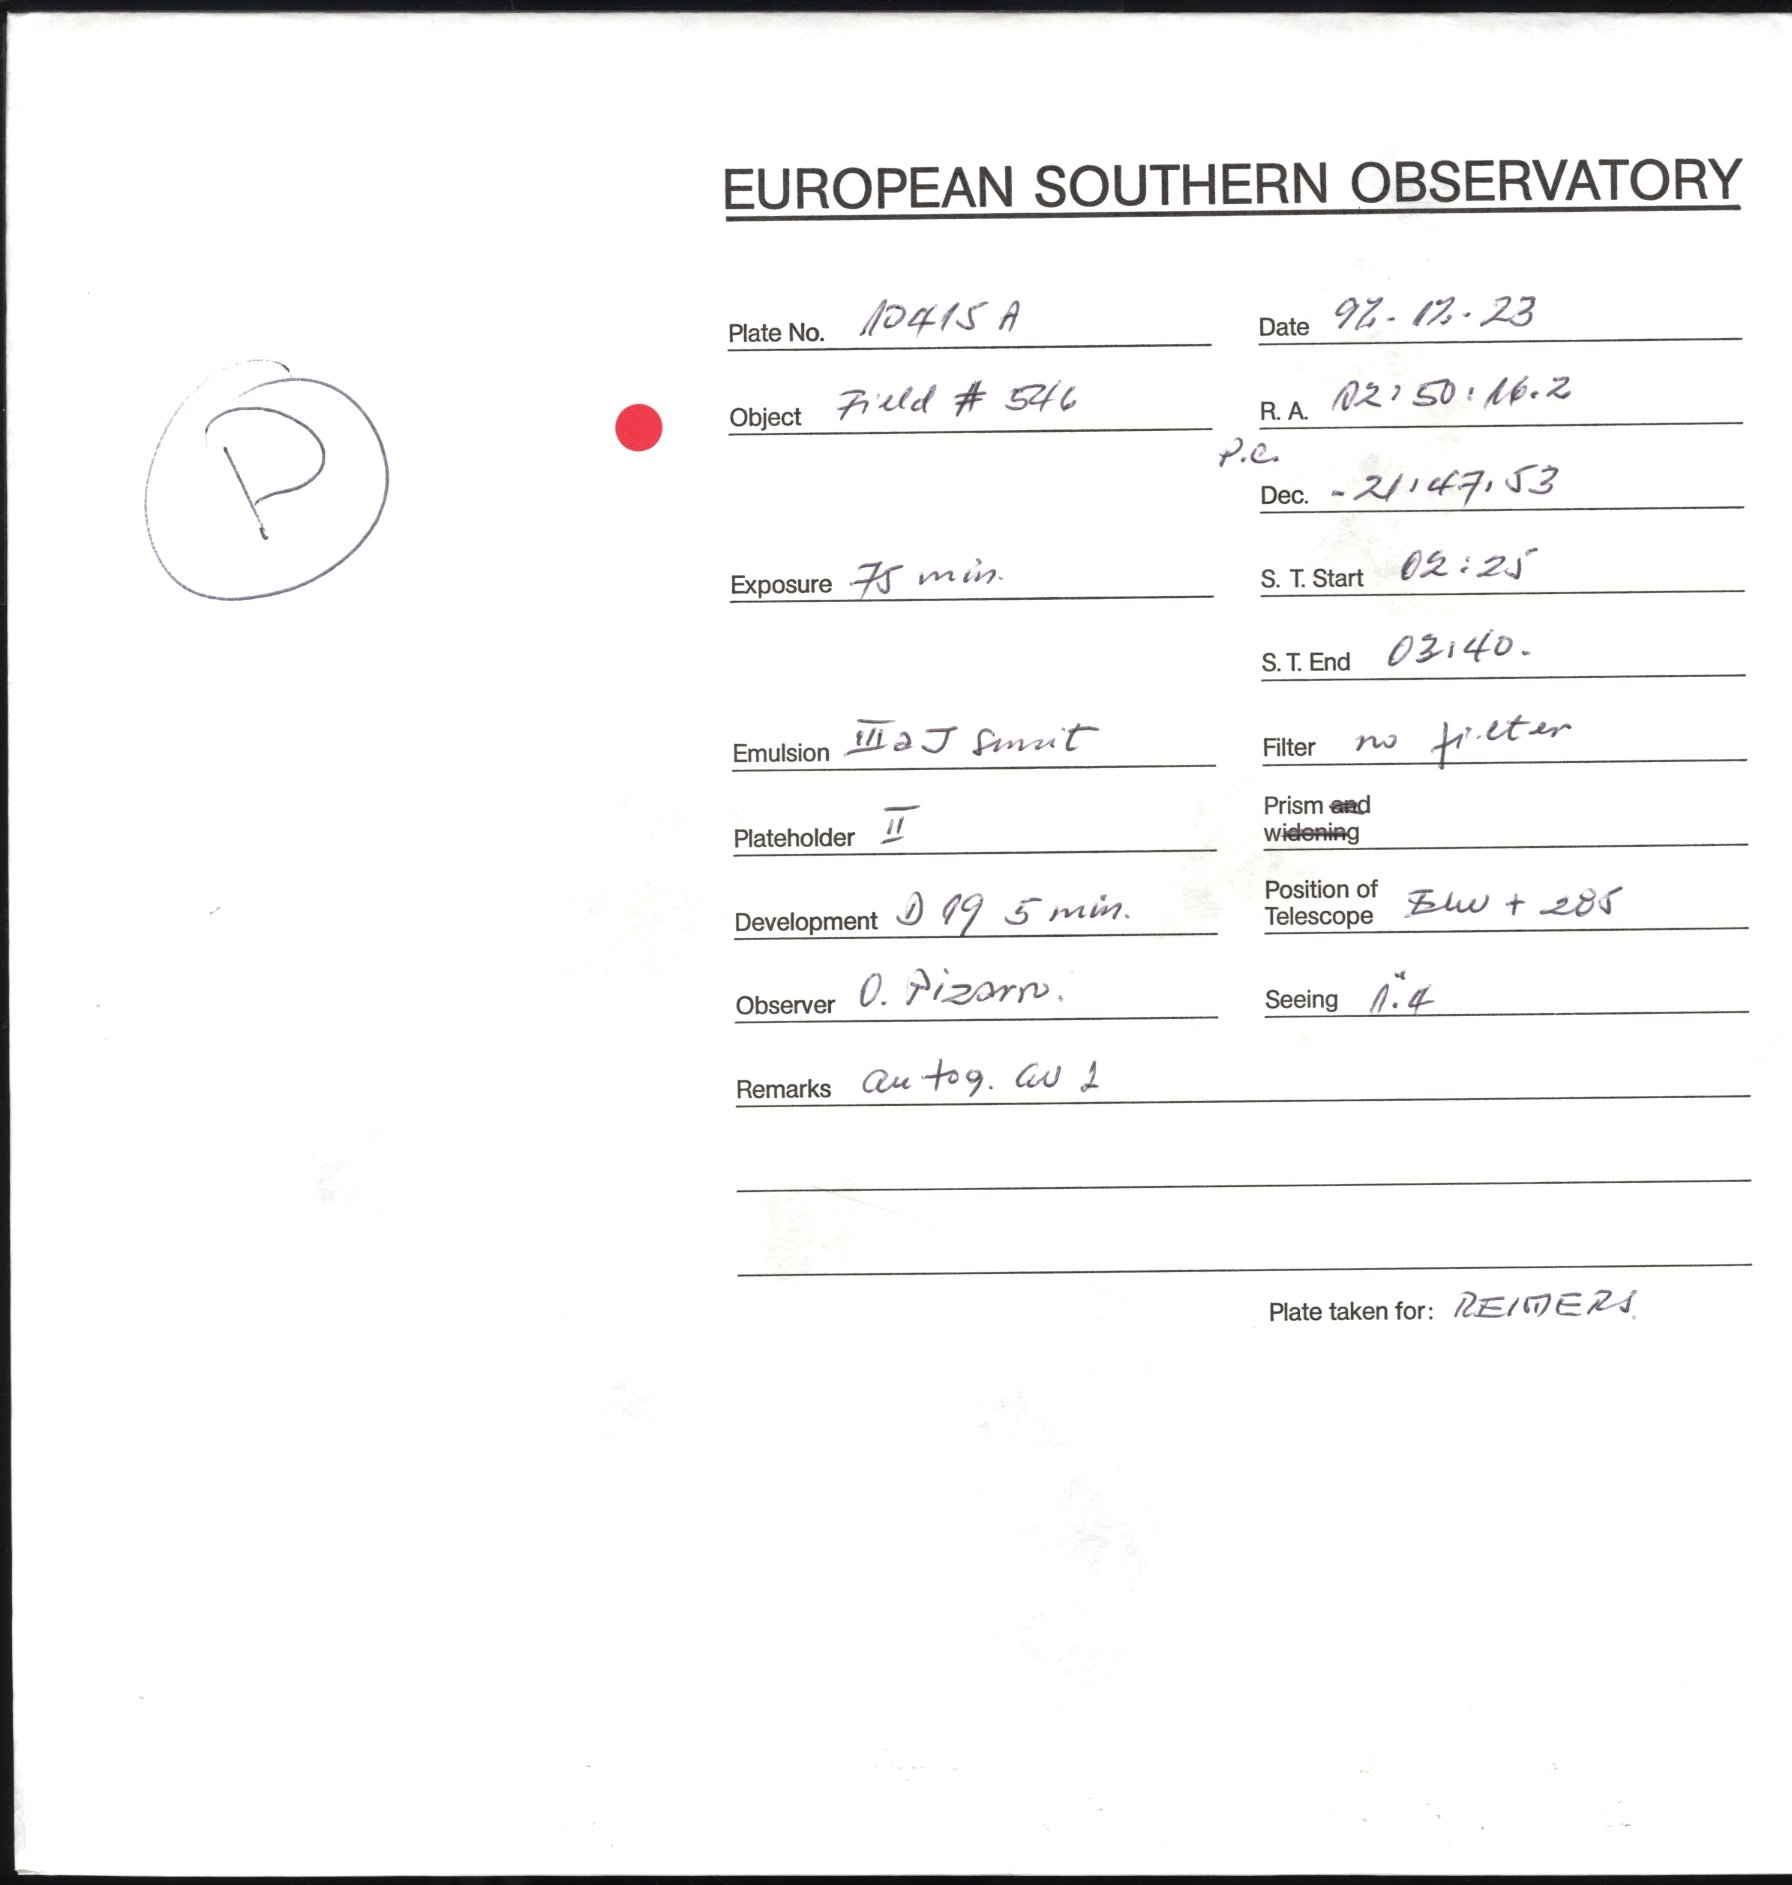 EUROPEAN SOUTHERN OBSERVATORY
Plate No. 10415 A
Date 92-12-23
P
Object Field # 546
R. A. 02:50:16.2
P.C.
Dec. -21:47:53
Exposure 75 min.
S. T. Start 02:25
S. T. End 03:40.
Emulsion IIIaJ
Filter no filter
Plateholder II
Prism and
widening
Development D 19 5 min.
Position of
Telescope + 285
Observer O. Pizarro.
Seeing 1".4
Remarks autog.
Plate taken for: REIMERS